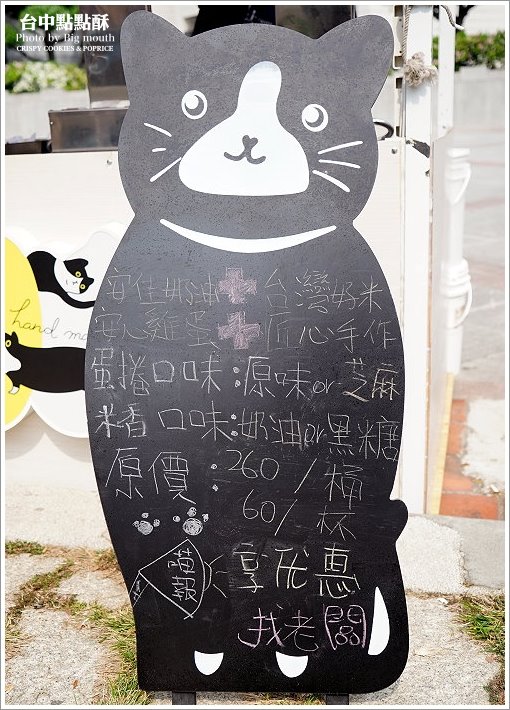 台中點點酥
Photo by Big mouth
CRISPY COOKIES & POPRICE
hand ma
安佳奶油+台灣好米
安心雞蛋+匠心手作
蛋捲口味:原味or芝麻
米香口味:奶油or黑糖
原價:260/桶
60/杯
享优惠
找老闆